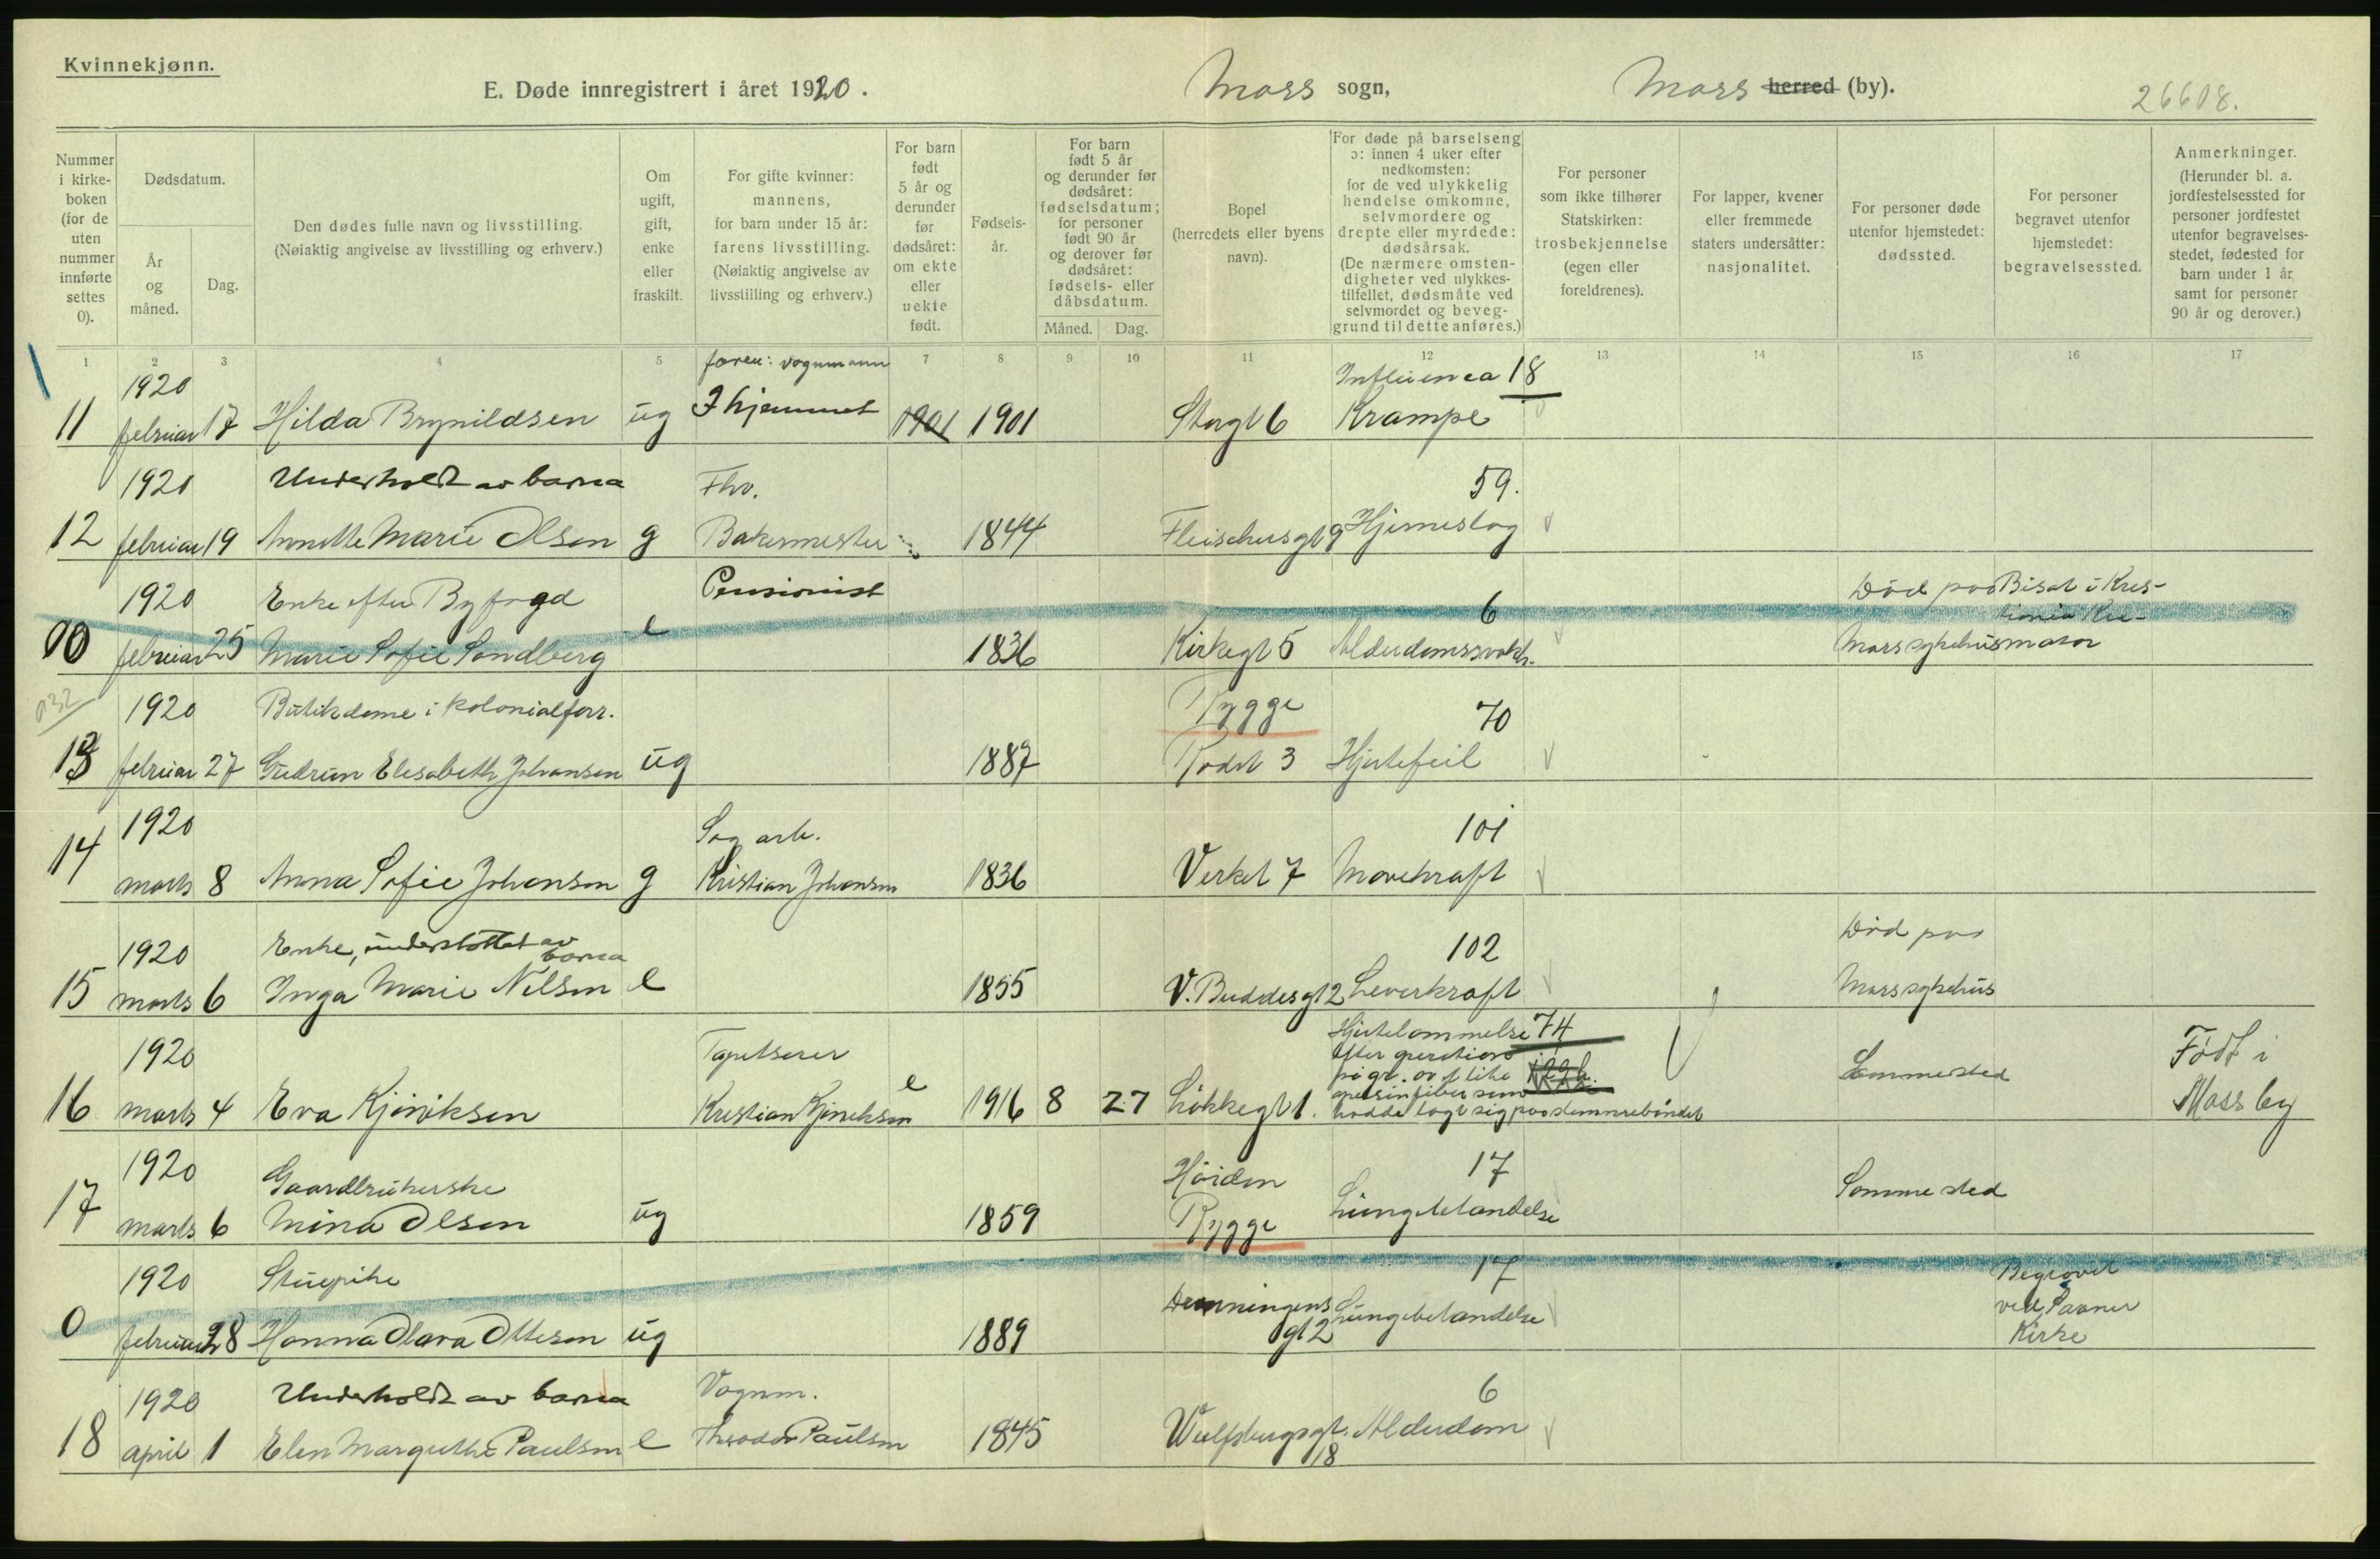 Kvinnekjønn.
E. Døde innregistrert i året 1920.
Moss sogn,
Moss herred (by).
26608.
Nummer i kirkeboken (for de uten nummer innførte settes 0).
Dødsdatum.
År og måned.
Dag.
Den dødes fulle navn og livsstilling.
(Nøiaktig angivelse av livsstilling og erhverv.)
Om ugift, gift, enke eller fraskilt.
For gifte kvinner: mannens, for barn under 15 år: farens livsstilling.
(Nøiaktig angivelse av livsstilling og erhverv.)
For barn født 5 år og derunder før dødsåret: om ekte eller uekte født.
Fødselsår.
For barn født 5 år og derunder før dødsåret: fødselsdatum; for personer født 90 år og derover før dødsåret: fødsels- eller dåbsdatum.
Måned.
Dag.
Bopel (herredets eller byens navn).
For døde på barselseng ɔ: innen 4 uker efter nedkomsten: for de ved ulykkelig hendelse omkomne, selvmordere og drepte eller myrdede: dødsårsak.
(De nærmere omstendigheter ved ulykkestilfellet, dødsmåte ved selvmordet og beveggrund til dette anføres.)
For personer som ikke tilhører Statskirken: trosbekjennelse (egen eller foreldrenes).
For lapper, kvener eller fremmede staters undersåtter: nasjonalitet.
For personer døde utenfor hjemstedet: dødssted.
For personer begravet utenfor hjemstedet: begravelsessted.
Anmerkninger.
(Herunder bl. a. jordfestelsessted for personer jordfestet utenfor begravelsesstedet, fødested for barn under 1 år samt for personer 90 år og derover.)
1 2 3 4 5 7 8 9 10 11 12 13 14 15 16 17
faren: vognmann
1920 Influenca 18
I hjemmet
11 februar 17 Hilda Brynildsen ug 1901 1901 Storgt 6 Krampe
1920 Underholdt av barna Fhv. 59.
12 februar 19 Annette Marie Olsen g Bakermester 1844 Fleischersgt 9 Hjerneslag
1920 Enke efter Byfogd Pensionist 6 Død paa Bisat i Kristiania Kre-
00 februar 25 Marie Sofie Sandberg e 1836 Kirkegt 5 Alderdomssvakh. Moss sykehus mator
032
1920 Butikdame i kolonialforr. Rygge 70
13 februar 27 Gudrun Elisabeth Johansen ug 1887 3 Hjertefeil
1920 Sag arb. 101
14 marts 8 Anna Sofie Johansen g Kristian Johansen 1836 Verket 7 Mavekraft
1920 Enke, understøttet av barna 102 Død paa
15 marts 6 Inga Marie Nilsen e 1855 V. Buddesgt 2 Leverkraft Moss sykehus
1920 Tapetserer Hjertelammelse 74
efter operation
Sammested Født i
16 marts 4 Eva Kjiniksen Kristian Kjiniksen e 1916 8 27 Løkkegt 1. hadde lagt sig paa stemmebåndet Moss by
1920 Gaardbrukerske Høiden 17
17 marts 6 Mina Olsen ug 1859 Rygge Lungebetændelse Sammested
1920 Stuepike 17 Begravet
0 februar 28 Hanna Olava Ottesen ug 1889 Henningens gt 2 Lungebetændelse ved Saaner Kirke
1920 Underholdt av barna Vognm. 6
18 april 1 Elen Margrethe Paulsen e Theodor Paulsen 1845 Wulfsbergsgt. 18 Alderdom